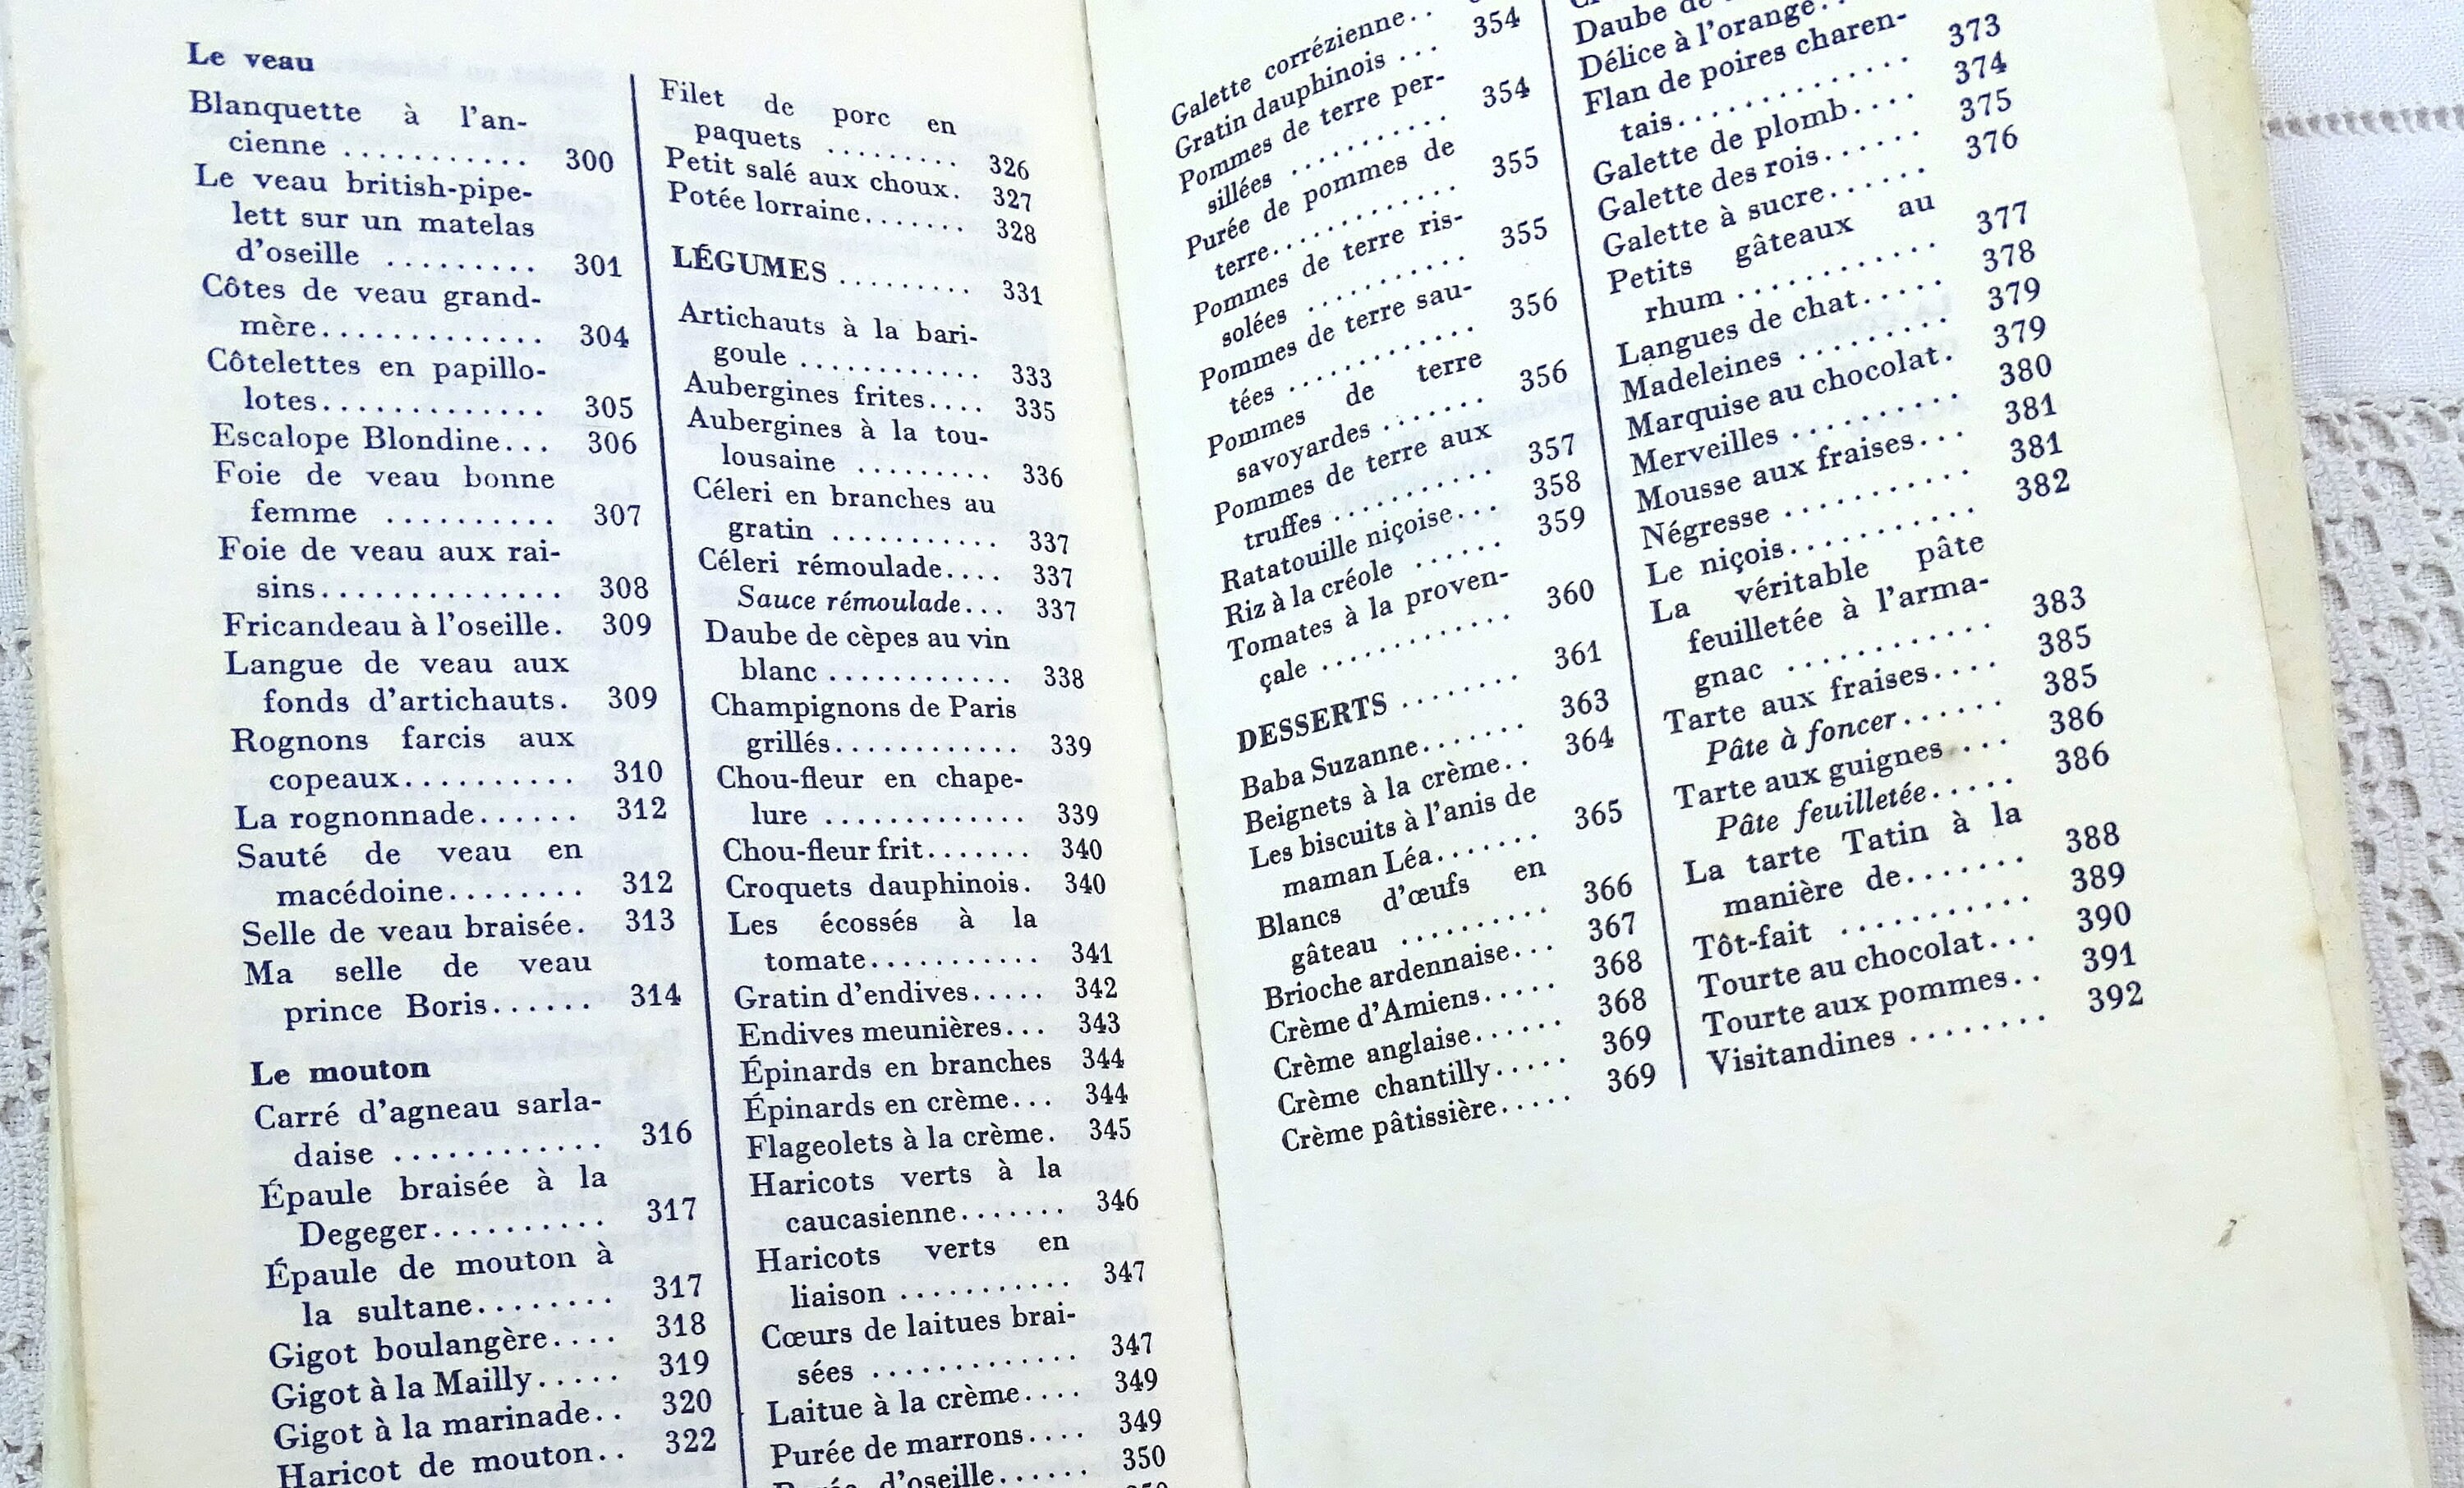 Le veau
Blanquette à l'an-
cienne ........... 300
Le veau british-pipe-
lett sur un matelas
d'oseille ......... 301
Côtes de veau grand-
mère............. 304
Côtelettes en papillo-
lotes............. 305
Escalope Blondine... 306
Foie de veau bonne
femme .......... 307
Foie de veau aux rai-
sins.............. 308
Fricandeau à l'oseille. 309
Langue de veau aux
fonds d'artichauts. 309
Rognons farcis aux
copeaux.......... 310
La rognonnade...... 312
Sauté de veau en
macédoine........ 312
Selle de veau braisée. 313
Ma selle de veau
prince Boris...... 314
Le mouton
Carré d'agneau sarla-
daise ........... 316
Épaule braisée à la
Degeger.......... 317
Épaule de mouton à
la sultane........ 317
Gigot boulangère.... 318
Gigot à la Mailly..... 319
Gigot à la marinade.. 320
Haricot de mouton.. 322
Filet de porc en
paquets ......... 326
Petit salé aux choux. 327
Potée lorraine....... 328
LÉGUMES ......... 331
Artichauts à la bari-
goule ............ 333
Aubergines frites.... 335
Aubergines à la tou-
lousaine ......... 336
Céleri en branches au
gratin ........... 337
Céleri rémoulade.... 337
Sauce rémoulade... 337
Daube de cèpes au vin
blanc ............ 338
Champignons de Paris
grillés............ 339
Chou-fleur en chape-
lure ............. 339
Chou-fleur frit....... 340
Croquets dauphinois. 340
Les écossés à la
tomate........... 341
Gratin d'endives..... 342
Endives meunières... 343
Épinards en branches 344
Épinards en crème... 344
Flageolets à la crème. 345
Haricots verts à la
caucasienne....... 346
Haricots verts en
liaison ........... 347
Cœurs de laitues brai-
sées ............. 347
Laitue à la crème.... 349
Purée de marrons.... 349
d'oseille...... 350
Galette corrézienne..
Gratin dauphinois ... 354
Pommes de terre per-
sillées .......... 354
Purée de pommes de
terre............ 355
Pommes de terre ris-
solées .......... 355
Pommes de terre sau-
tées ............ 356
Pommes de terre
savoyardes ...... 356
Pommes de terre aux
truffes .......... 357
Ratatouille niçoise... 358
Riz à la créole ...... 359
Tomates à la proven-
çale ............ 360
DESSERTS ....... 361
Baba Suzanne....... 363
Beignets à la crème.. 364
Les biscuits à l'anis de
maman Léa....... 365
Blancs d'œufs en
gâteau .......... 366
Brioche ardennaise... 367
Crème d'Amiens..... 368
Crème anglaise...... 368
Crème chantilly..... 369
Crème pâtissière..... 369
Daube de
Délice à l'orange..
Flan de poires charen- 373
tais............ 374
Galette de plomb.... 375
Galette des rois...... 376
Galette à sucre......
Petits gâteaux au
rhum ........... 377
Langues de chat..... 378
Madeleines ........ 379
Marquise au chocolat. 379
Merveilles ......... 380
Mousse aux fraises... 381
Négresse .......... 381
Le niçois.......... 382
La véritable pâte
feuilletée à l'arma-
gnac ........... 383
Tarte aux fraises.... 385
Pâte à foncer...... 385
Tarte aux guignes ... 386
Pâte feuilletée..... 386
La tarte Tatin à la
manière de....... 388
Tôt-fait .......... 389
Tourte au chocolat... 390
Tourte aux pommes.. 391
Visitandines ........ 392